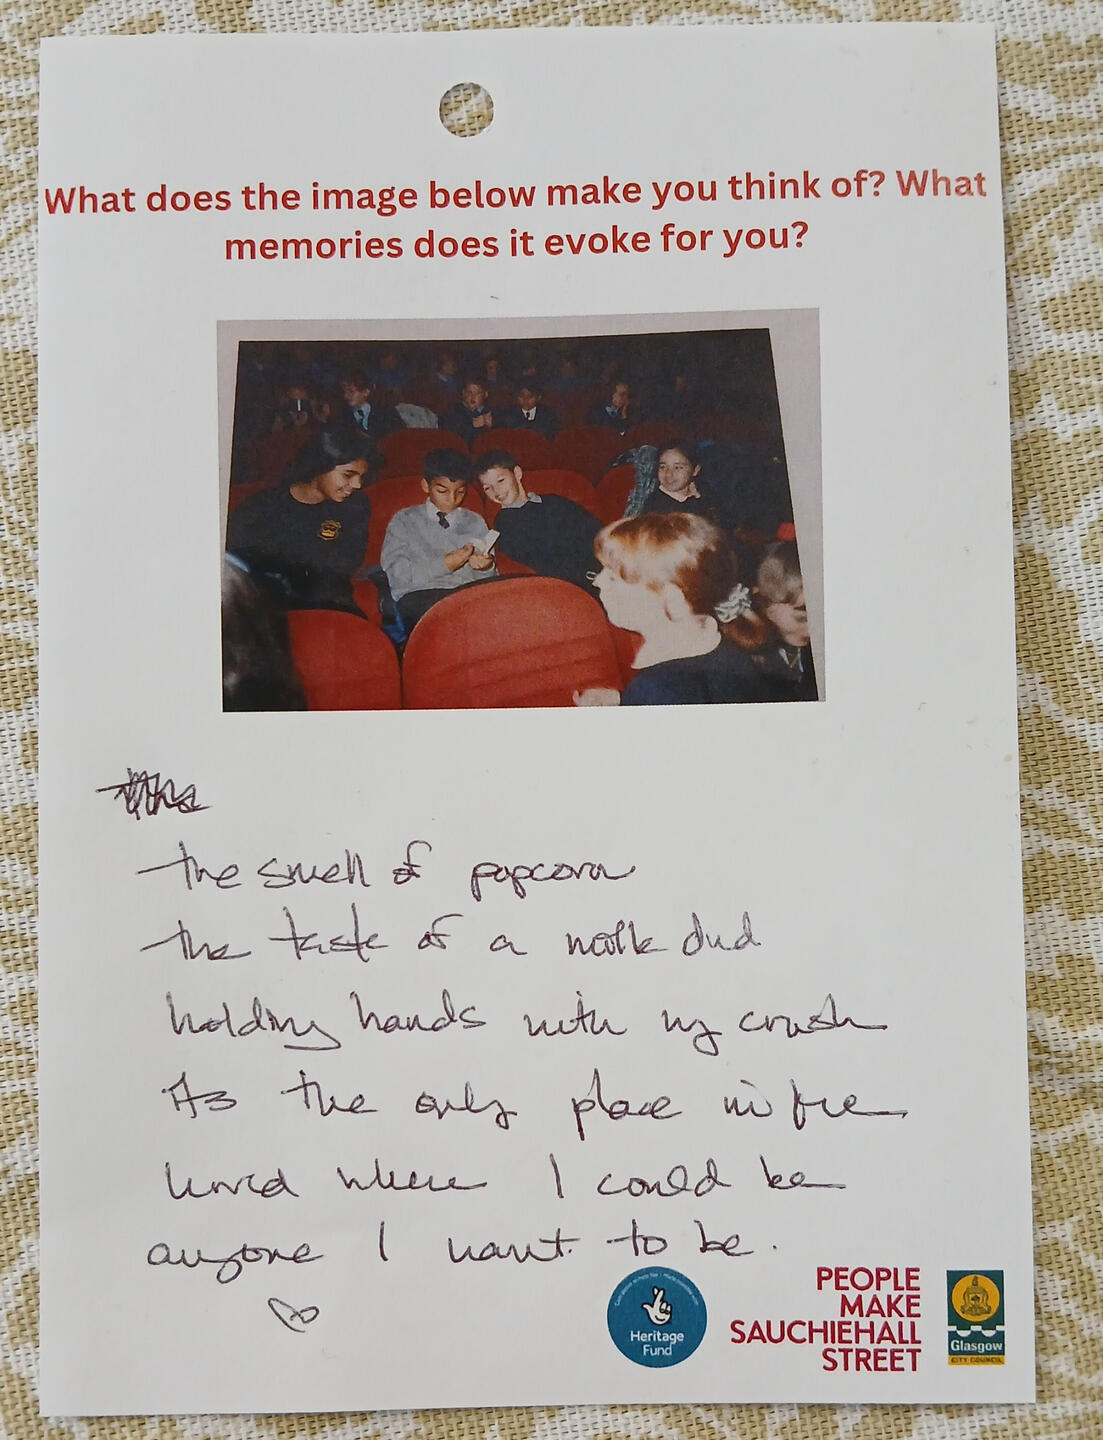 What does the image below make you think of? What
memories does it evoke for you?
the smell of popcorn
the taste of a milk dud
holding hands with my crush
its the only place in the
world where I could be
anyone I want to be.
Heritage
Fund
PEOPLE
MAKE
SAUCHIEHALL
STREET
Glasgow
CITY COUNCIL